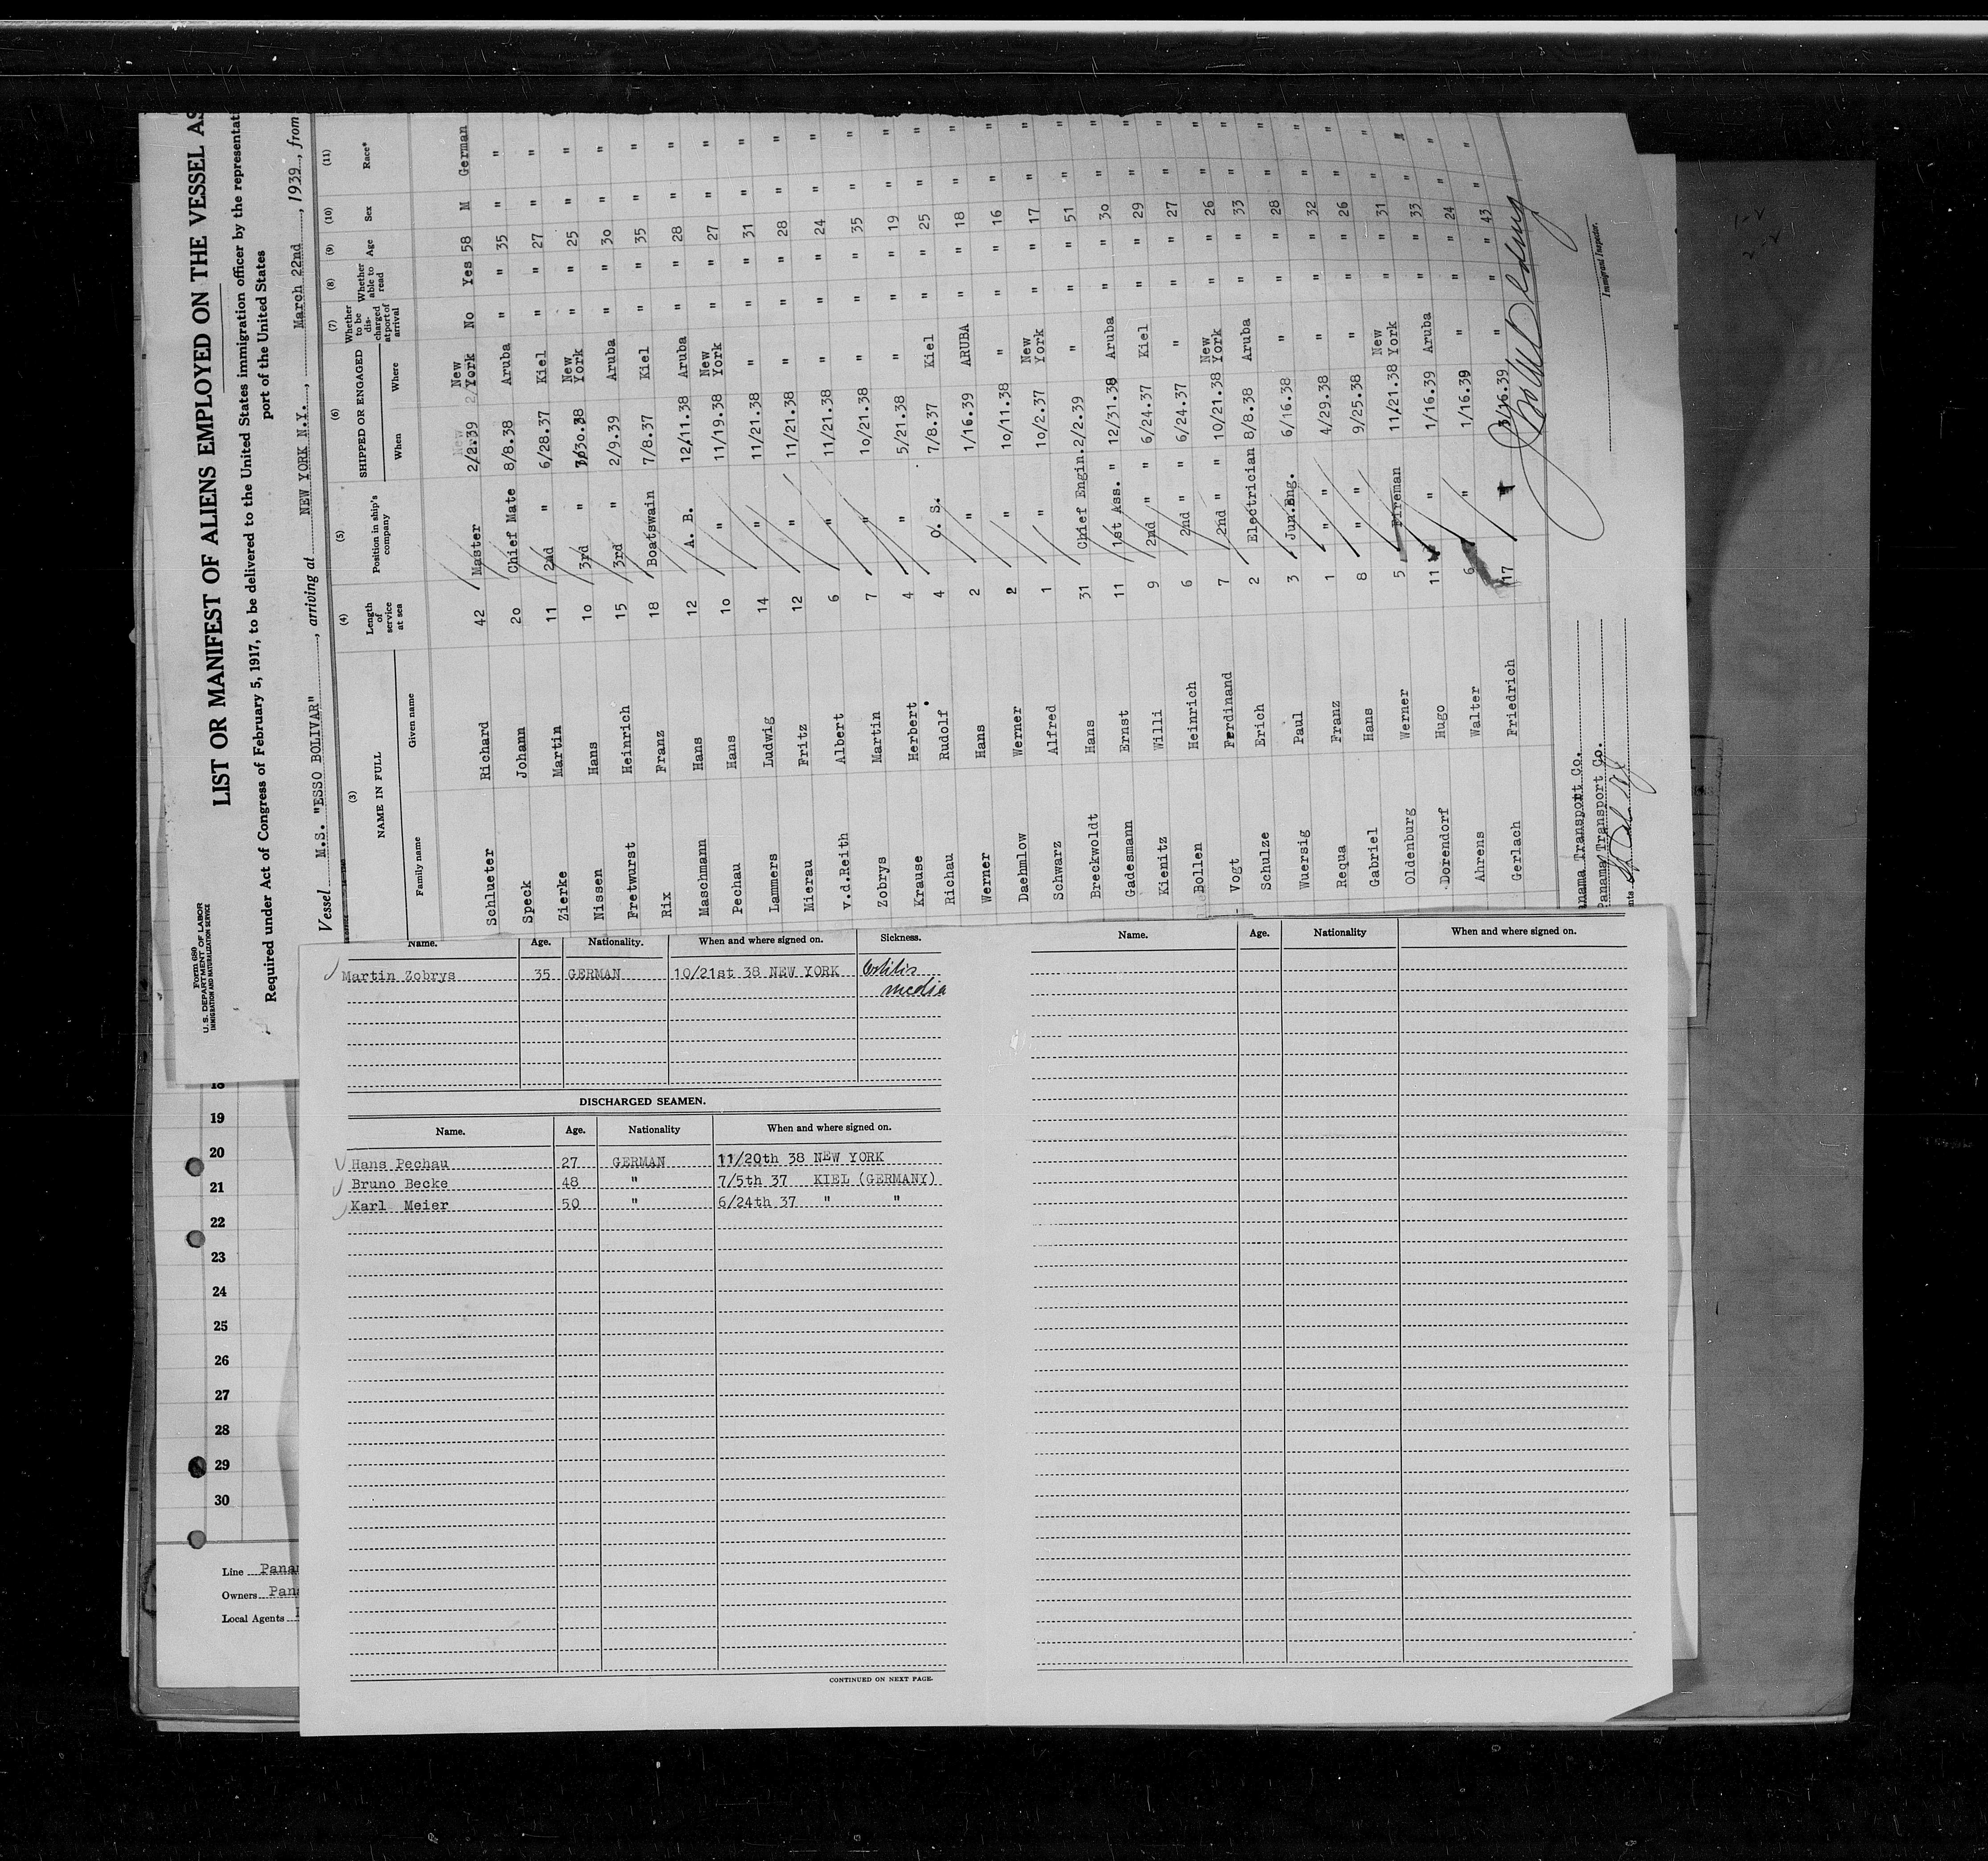 Form 680
U. S. DEPARTMENT OF LABOR
IMMIGRATION AND NATURALIZATION SERVICE
LIST OR MANIFEST OF ALIENS EMPLOYED ON THE VESSEL AS
Required under Act of Congress of February 5, 1917, to be delivered to the United States immigration officer by the representati
port of the United States
Vessel M.S. "ESSO BOLIVAR", arriving at NEW YORK N.Y., March 22nd, 1939, from
(3) (4) (5) (6) (7) (8) (9) (10) (11)
NAME IN FULL Length of service at sea Position in ship's company SHIPPED OR ENGAGED Whether to be discharged at port of arrival Whether able to read Age Sex Race*
Family name Given name When Where
Schlueter Richard 42 Master 2/2.39 New York No Yes 58 M German
Speck Johann 20 Chief Mate 8/8.38 Aruba " " 35 " "
Zierke Martin 11 2nd " 6/28.37 Kiel " " 27 " "
Nissen Hans 10 3rd " 7/30.38 New York " " 25 " "
Fretwurst Heinrich 15 3rd " 2/9.39 Aruba " " 30 " "
Rix Franz 18 Boatswain 7/8.37 Kiel " " 35 " "
Maschmann Hans 12 A. B. 12/11.38 Aruba " " 28 " "
Pechau Hans 10 " 11/19.38 New York " " 27 " "
Lammers Ludwig 14 " 11/21.38 " " " 31 " "
Mierau Fritz 12 " 11/21.38 " " " 28 " "
v.d.Reith Albert 6 " 11/21.38 " " " 24 " "
Zobrys Martin 7 " 10/21.38 " " " 35 " "
Krause Herbert 4 " 5/21.38 " " " 19 " "
Richau Rudolf 4 O. S. 7/8.37 Kiel " " 25 " "
Werner Hans 2 " 1/16.39 ARUBA " " 18 " "
Daehmlow Werner 2 " 10/11.38 " " " 16 " "
Schwarz Alfred 1 " 10/2.37 New York " " 17 " "
Breckwoldt Hans 31 Chief Engin. 2/2.39 " " " 51 " "
Gadesmann Ernst 11 1st Ass. " 12/31.38 Aruba " " 30 " "
Kienitz Willi 9 2nd " " 6/24.37 Kiel " " 29 " "
Bollen Heinrich 6 2nd " " 6/24.37 " " " 27 " "
Vogt Ferdinand 7 2nd " " 10/21.38 New York " " 26 " "
Schulze Erich 2 Electrician 8/8.38 Aruba " " 33 " "
Wuersig Paul 3 Jun.Eng. 6/16.38 " " " 28 " "
Requa Franz 1 " " 4/29.38 " " " 32 " "
Gabriel Hans 8 " " 9/25.38 " " " 26 " "
Oldenburg Werner 5 Fireman 11/21.38 New York " " 31 " "
Dorendorf Hugo 11 " 1/16.39 Aruba " " 33 " "
Ahrens Walter 6 " 1/16.39 " " " 24 " "
Gerlach Friedrich 17 " 3/16.39 " " " 43 " "
Panama Transport Co.
Panama Transport Co.
Immigrant Inspector.
Name. Age. Nationality. When and where signed on. Sickness.
Martin Zobrys 35 GERMAN 10/21st 38 NEW YORK
media
DISCHARGED SEAMEN.
Name. Age. Nationality When and where signed on.
Hans Pechau 27 GERMAN 11/20th 38 NEW YORK
Bruno Becke 48 " 7/5th 37 KIEL (GERMANY)
Karl Meier 50 " 6/24th 37 " "
CONTINUED ON NEXT PAGE.
Name. Age. Nationality When and where signed on.
18
19
20
21
22
23
24
25
26
27
28
29
30
Line Panam
Owners Pana
Local Agents